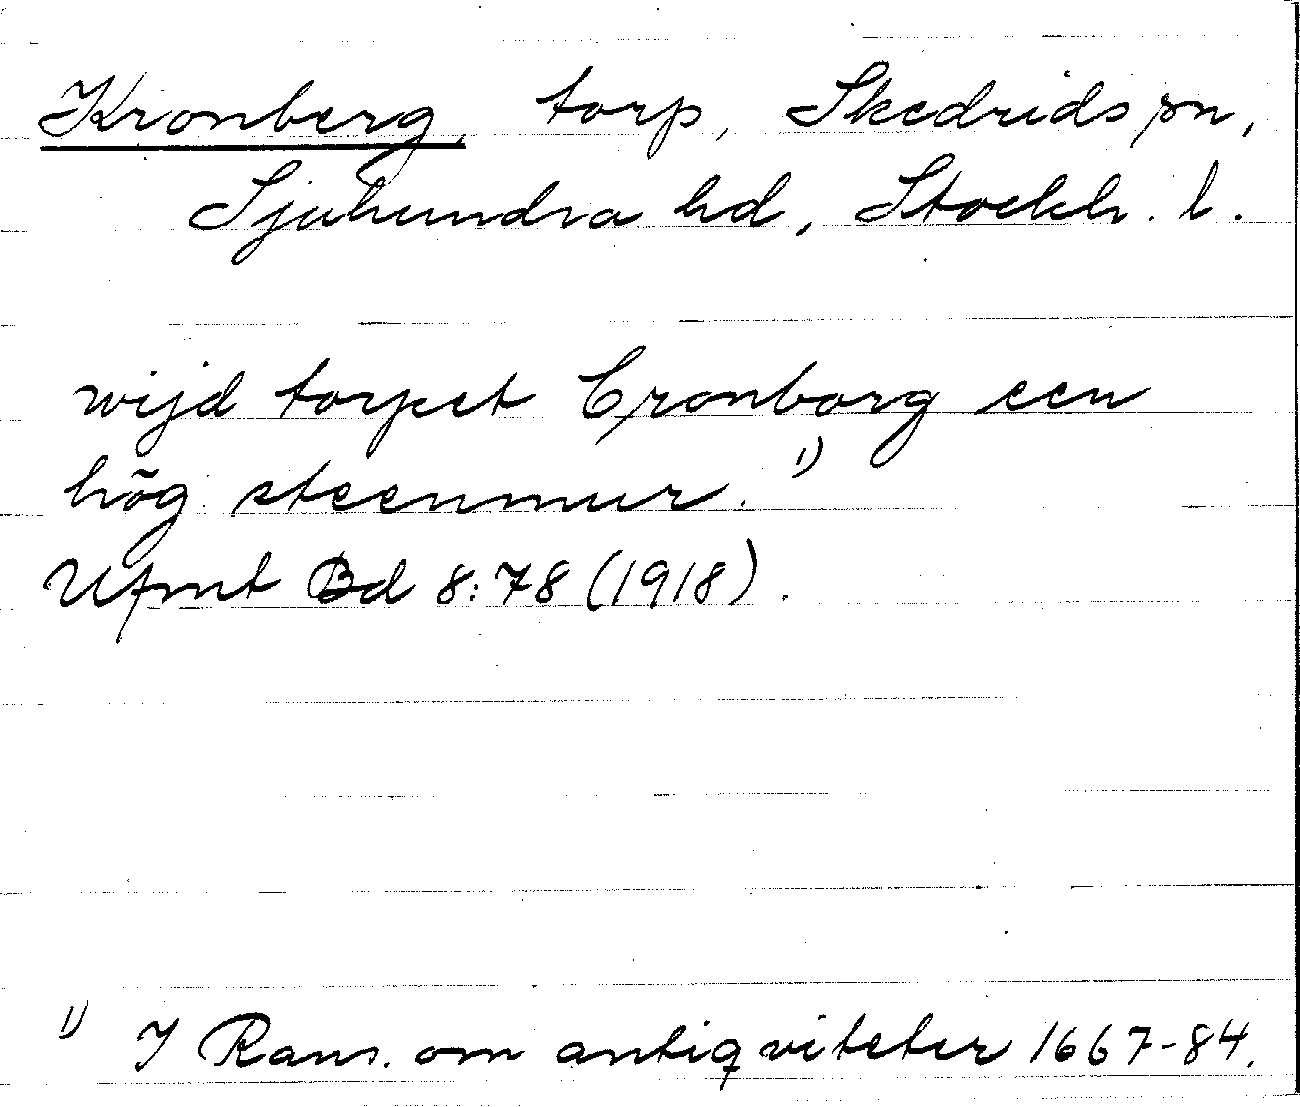 Kronberg, torp, Skedrids sn,
Sjuhundra hd, Stockh. l.
wijd torpet Cronborg een
hög steenmur. 1)
Ufmt Bd 8:78 (1918).
1) I Rans. om antiqviteter 1667-84.